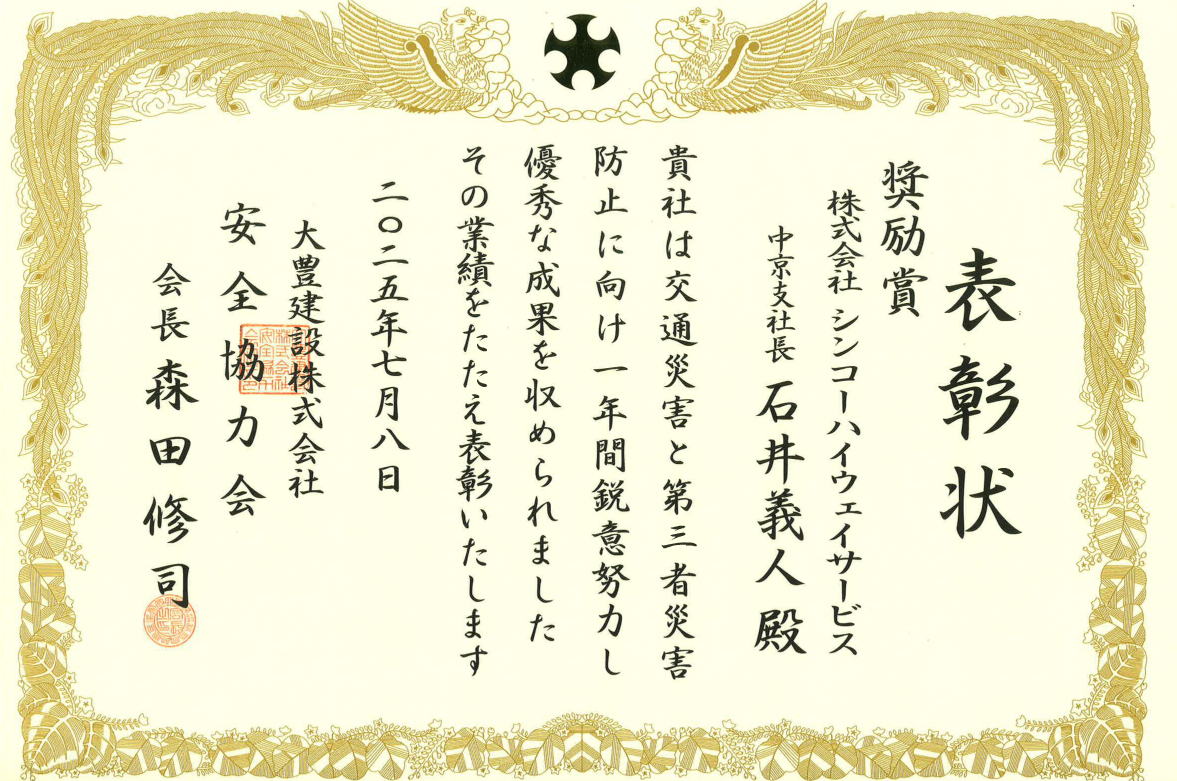 表彰状
奨励賞
株式会社 シンコーハイウェイサービス
中京支社長 石井義人殿
貴社は交通災害と第三者災害
防止に向け一年間鋭意努力し
優秀な成果を収められました
その業績をたたえ表彰いたします
二〇二五年七月八日
大豊建設株式会社
安全協力会
会長 森田修司